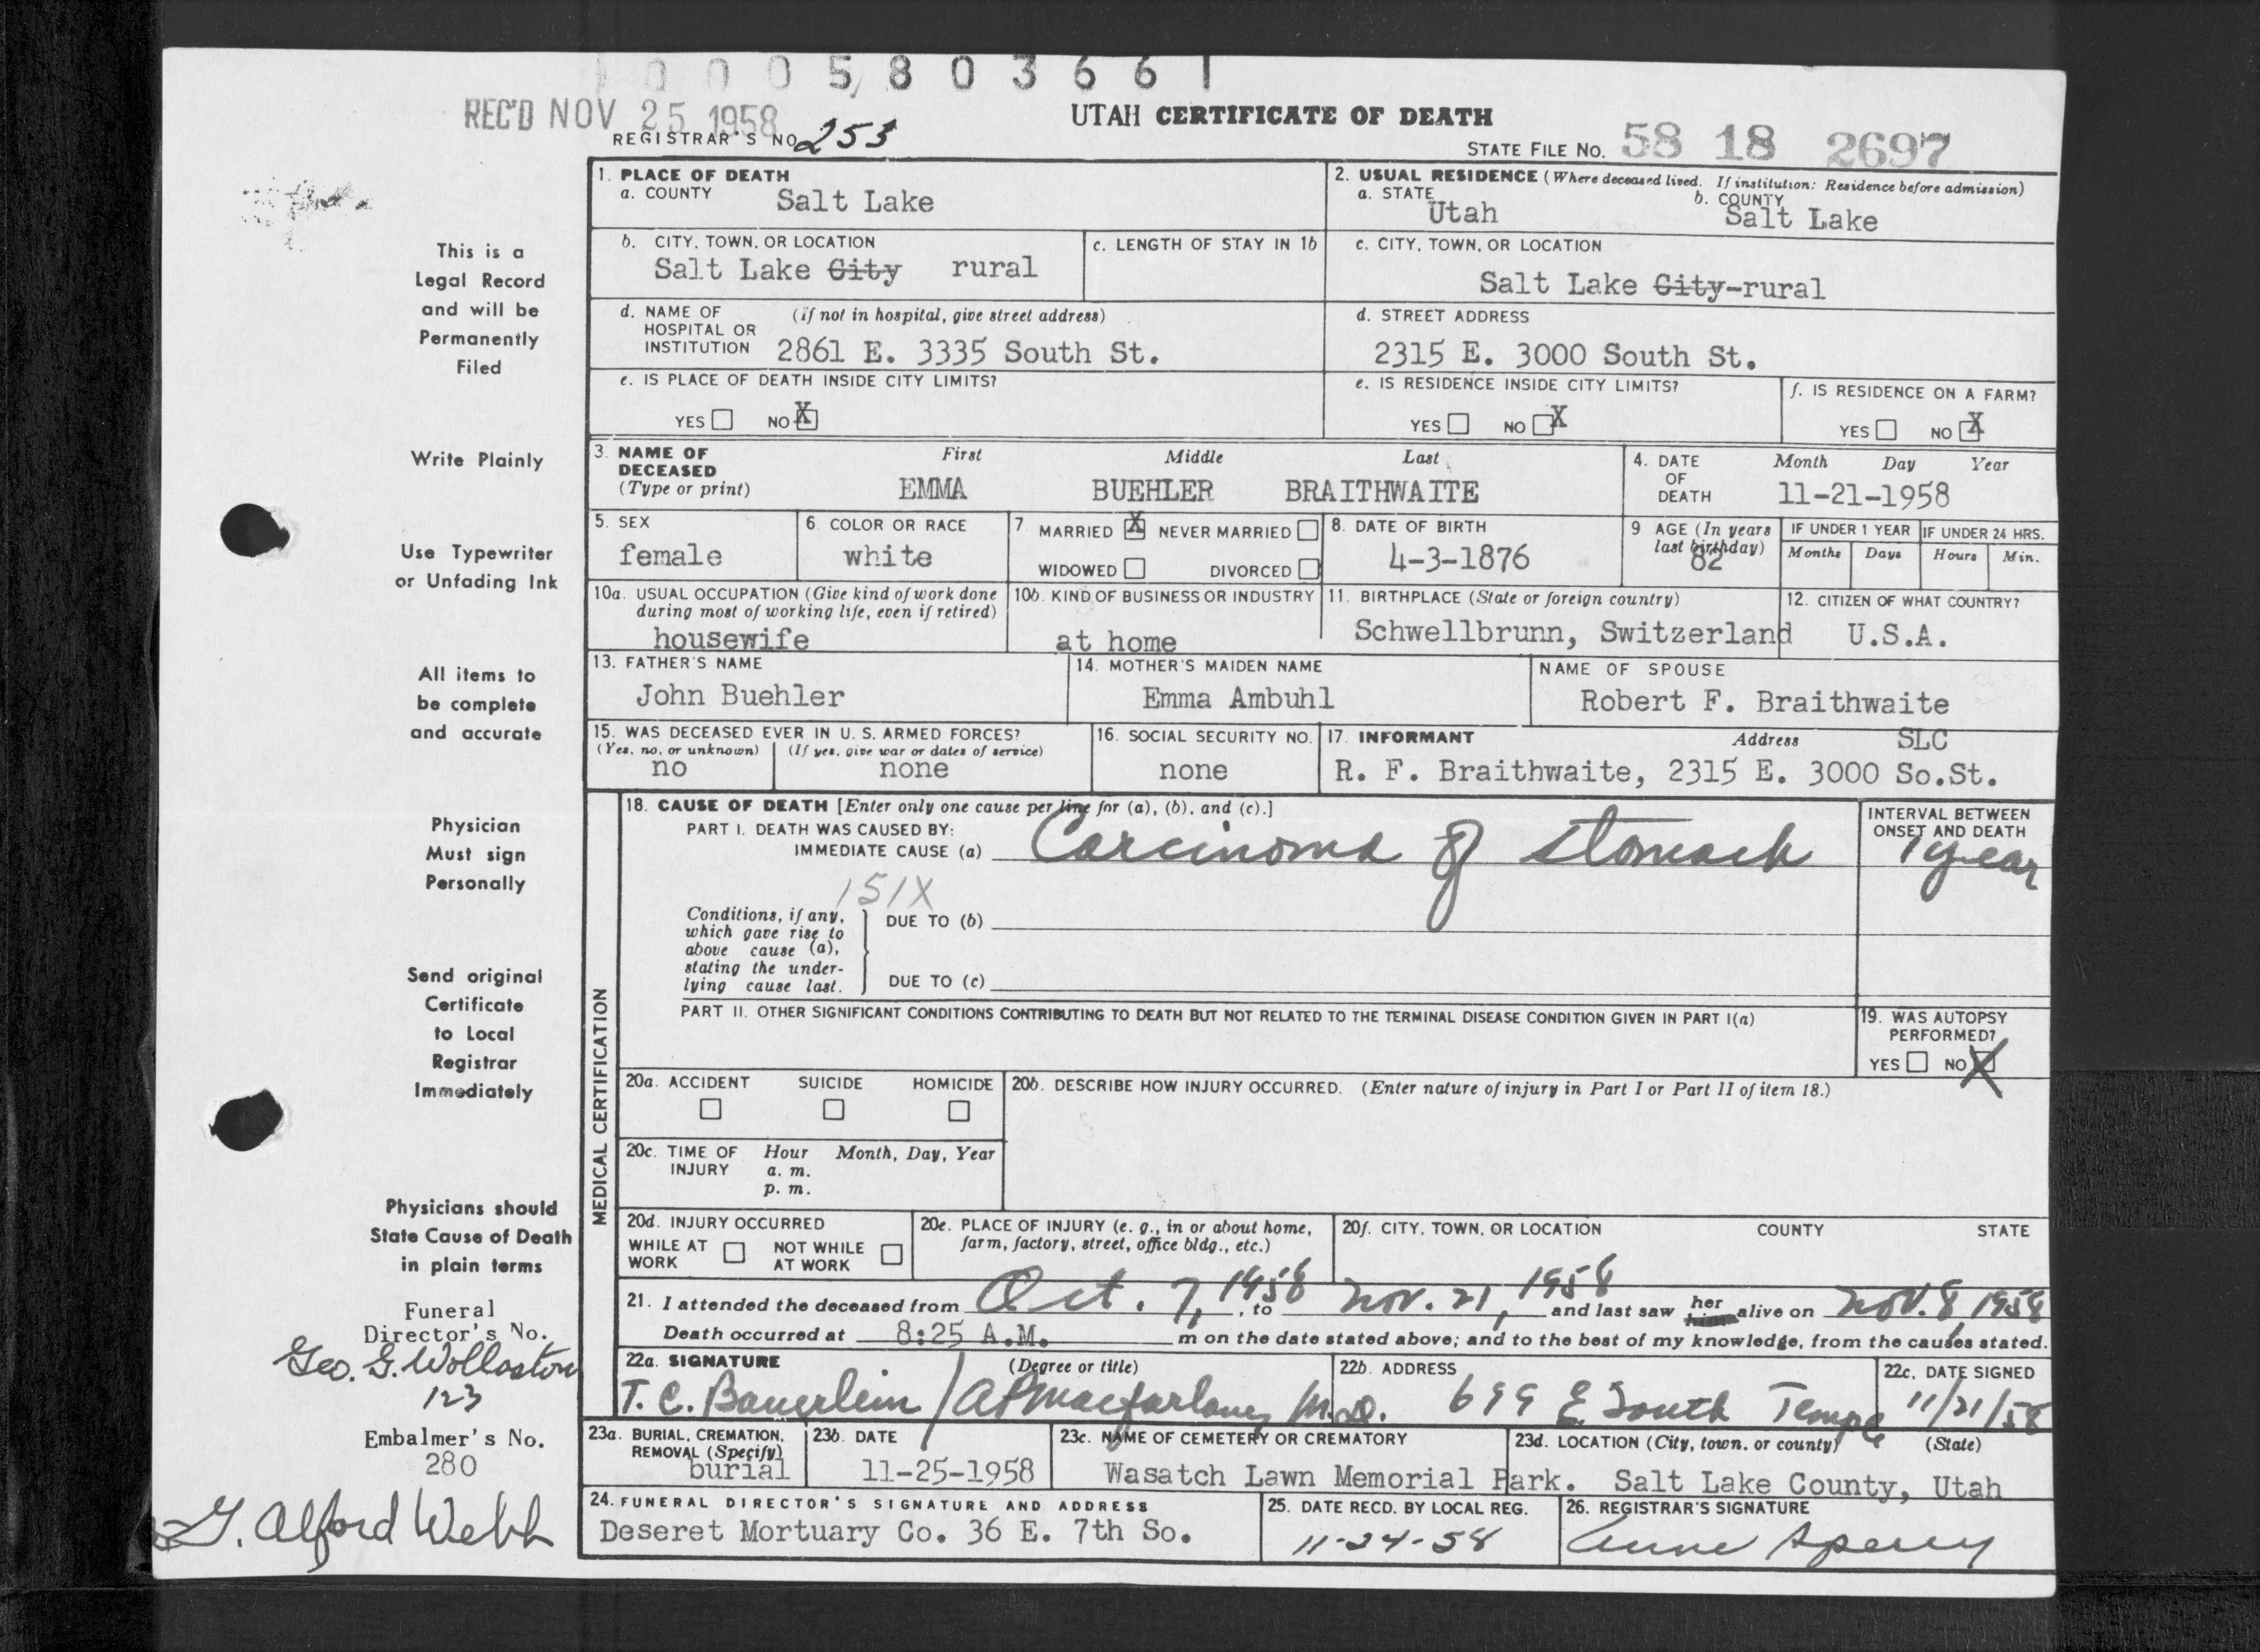 0 0 0 5 8 0 3 6 6 1
REC'D NOV 25 1958
UTAH CERTIFICATE OF DEATH
REGISTRAR'S NO. 253
STATE FILE NO. 58 18 2697
1. PLACE OF DEATH
a. COUNTY Salt Lake
2. USUAL RESIDENCE (Where deceased lived. If institution: Residence before admission)
a. STATE Utah b. COUNTY Salt Lake
This is a
Legal Record
and will be
Permanently
Filed
b. CITY, TOWN, OR LOCATION
Salt Lake City rural
c. LENGTH OF STAY IN 1b
c. CITY, TOWN, OR LOCATION
Salt Lake City-rural
d. NAME OF (if not in hospital, give street address)
HOSPITAL OR
INSTITUTION 2861 E. 3335 South St.
d. STREET ADDRESS
2315 E. 3000 South St.
e. IS PLACE OF DEATH INSIDE CITY LIMITS?
YES NO X
e. IS RESIDENCE INSIDE CITY LIMITS?
YES NO X
f. IS RESIDENCE ON A FARM?
YES NO X
Write Plainly
3. NAME OF First Middle Last
DECEASED
(Type or print) EMMA BUEHLER BRAITHWAITE
4. DATE Month Day Year
OF
DEATH 11-21-1958
Use Typewriter
or Unfading Ink
5. SEX
female
6. COLOR OR RACE
white
7 MARRIED X NEVER MARRIED
WIDOWED DIVORCED
8. DATE OF BIRTH
4-3-1876
9 AGE (In years
last birthday)
82
IF UNDER 1 YEAR IF UNDER 24 HRS.
Months Days Hours Min.
10a. USUAL OCCUPATION (Give kind of work done
during most of working life, even if retired)
housewife
10b. KIND OF BUSINESS OR INDUSTRY
at home
11. BIRTHPLACE (State or foreign country)
Schwellbrunn, Switzerland
12. CITIZEN OF WHAT COUNTRY?
U.S.A.
All items to
be complete
and accurate
13. FATHER'S NAME
John Buehler
14. MOTHER'S MAIDEN NAME
Emma Ambuhl
NAME OF SPOUSE
Robert F. Braithwaite
15. WAS DECEASED EVER IN U. S. ARMED FORCES?
(Yes, no, or unknown) (If yes, give war or dates of service)
no none
16. SOCIAL SECURITY NO.
none
17. INFORMANT Address SLC
R. F. Braithwaite, 2315 E. 3000 So.St.
Physician
Must sign
Personally
MEDICAL CERTIFICATION
18. CAUSE OF DEATH [Enter only one cause per line for (a), (b), and (c).]
PART I. DEATH WAS CAUSED BY:
IMMEDIATE CAUSE (a) Carcinoma of stomach
INTERVAL BETWEEN
ONSET AND DEATH
1 year
151X
Conditions, if any,
which gave rise to
above cause (a),
stating the under-
lying cause last.
DUE TO (b)
DUE TO (c)
Send original
Certificate
to Local
Registrar
Immediately
PART II. OTHER SIGNIFICANT CONDITIONS CONTRIBUTING TO DEATH BUT NOT RELATED TO THE TERMINAL DISEASE CONDITION GIVEN IN PART I(a)
19. WAS AUTOPSY
PERFORMED?
YES NO X
20a. ACCIDENT SUICIDE HOMICIDE
20b. DESCRIBE HOW INJURY OCCURRED. (Enter nature of injury in Part I or Part II of item 18.)
20c. TIME OF Hour Month, Day, Year
INJURY a. m.
p. m.
Physicians should
State Cause of Death
in plain terms
20d. INJURY OCCURRED
WHILE AT NOT WHILE
WORK AT WORK
20e. PLACE OF INJURY (e. g., in or about home,
farm, factory, street, office bldg., etc.)
20f. CITY, TOWN, OR LOCATION COUNTY STATE
21. I attended the deceased from Oct. 7, 1958, to Nov. 21, 1958 and last saw her him alive on Nov. 8, 1958
Death occurred at 8:25 A.M. m on the date stated above; and to the best of my knowledge, from the causes stated.
Funeral
Director's No.
Geo. G. Wollaston
123
22a. SIGNATURE (Degree or title)
T. C. Bauerlein / A P Macfarlane, M.D.
22b. ADDRESS
699 E South Temple
22c. DATE SIGNED
11/21/58
Embalmer's No.
280
G. Alford Webb
23a. BURIAL, CREMATION,
REMOVAL (Specify)
burial
23b. DATE
11-25-1958
23c. NAME OF CEMETERY OR CREMATORY
Wasatch Lawn Memorial Park.
23d. LOCATION (City, town, or county) (State)
Salt Lake County, Utah
24. FUNERAL DIRECTOR'S SIGNATURE AND ADDRESS
Deseret Mortuary Co. 36 E. 7th So.
25. DATE RECD. BY LOCAL REG.
11-24-58
26. REGISTRAR'S SIGNATURE
Anne Sperry